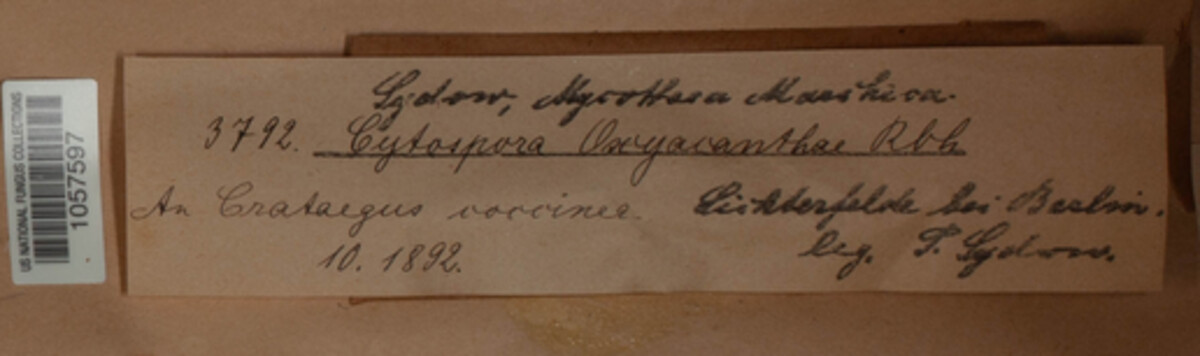 Sydow, Mycotheca Marchica.
3792. Cytospora Oxyacanthae Rbh
An Crataegus coccinea Lichterfelde bei Berlin.
10. 1892. leg. P. Sydow.
US NATIONAL FUNGUS COLLECTIONS
1057597